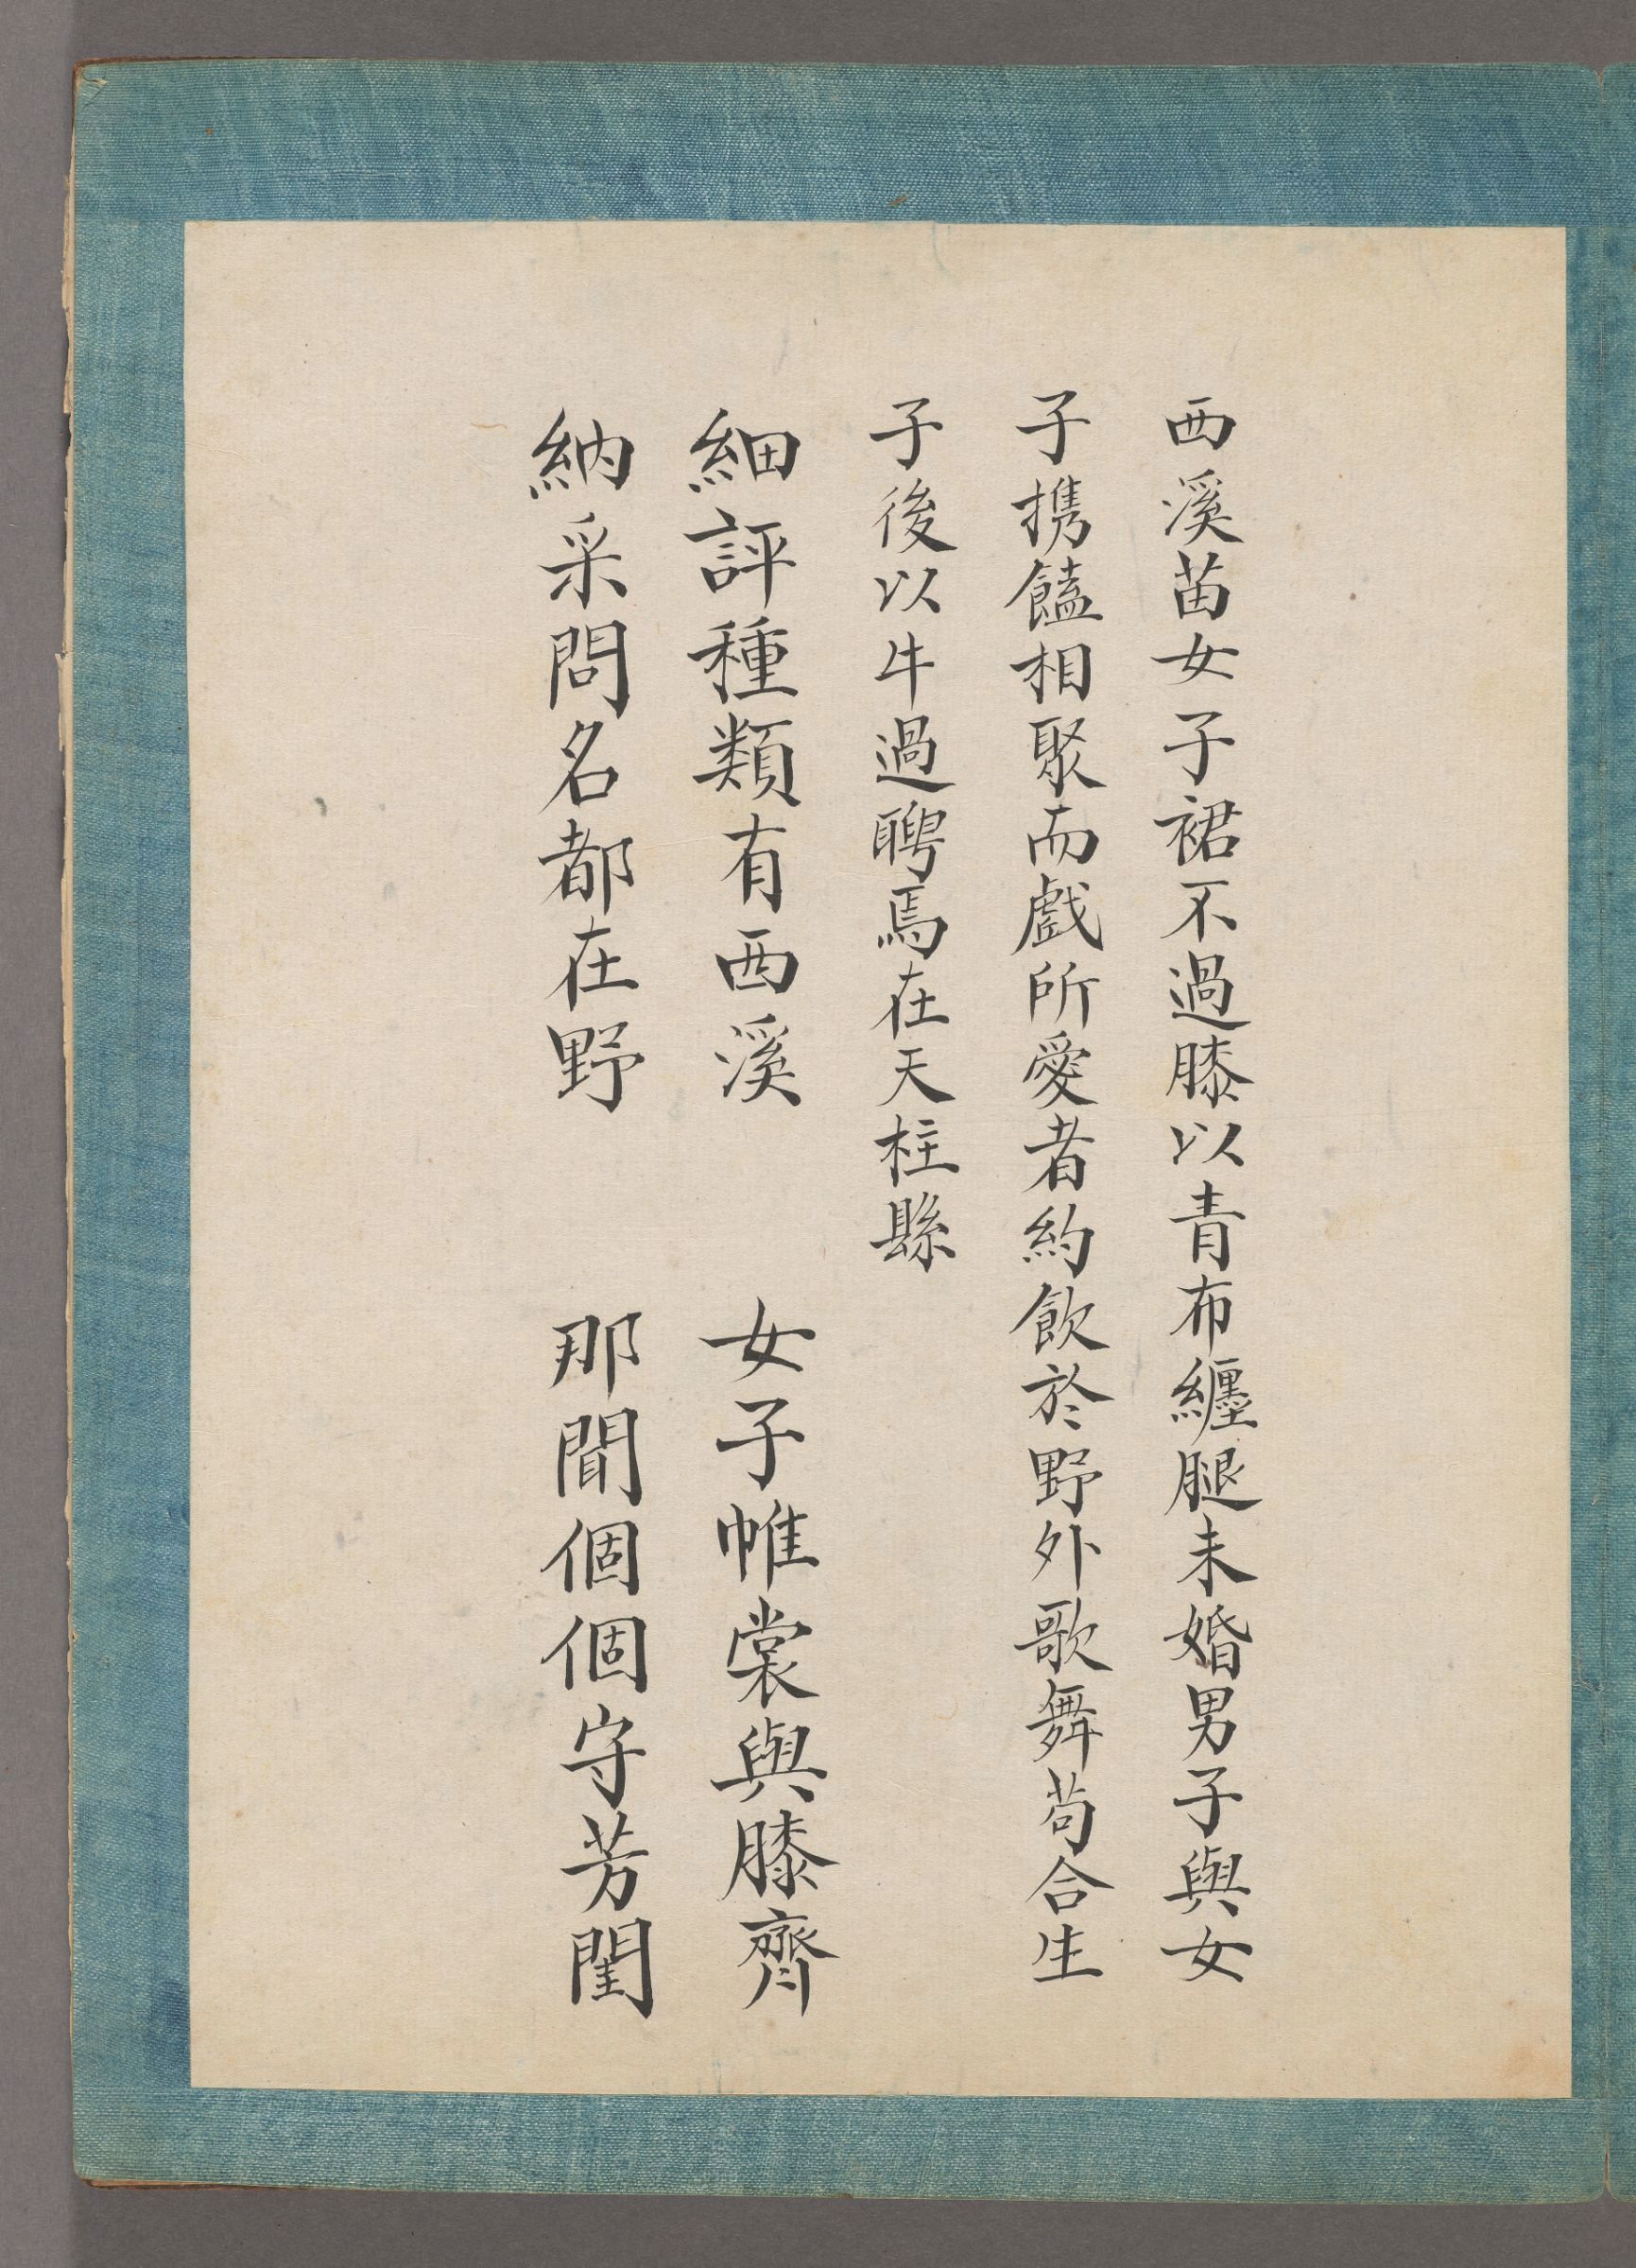 西溪苗女子裙不過膝以青布纏腿未婚男子與女
子携饁相聚而戲所愛者約飲於野外歌舞苟合生
子後以牛過聘焉在天柱縣
細評種類有西溪　女子帷裳與膝齊
納采問名都在野　那間個個守芳閨